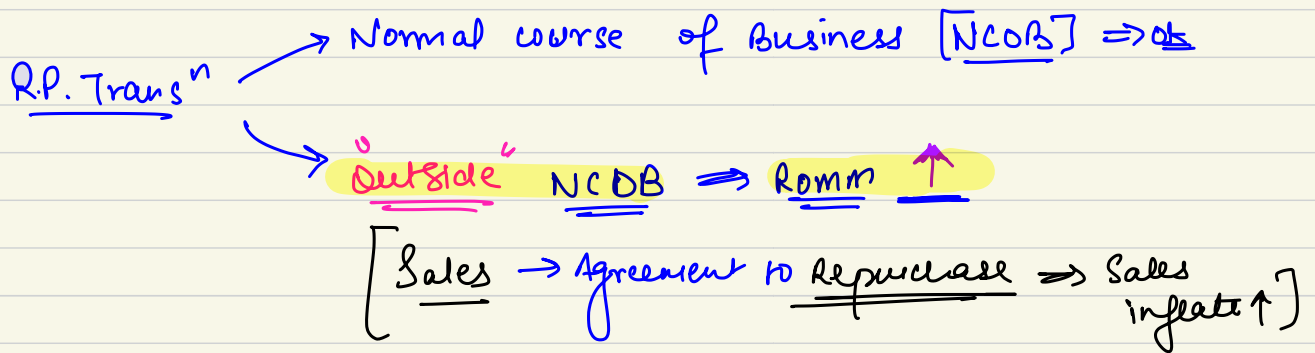 Normal course of Business [NCOB] ⇒ ok
R.P. Transⁿ
"Outside" NCOB ⇒ Romm ↑
[Sales → Agreement to Repurchase ⇒ Sales
inflate ↑]